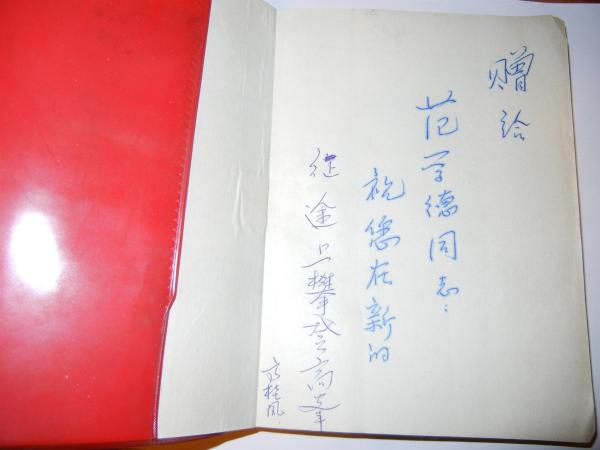 赠给
范学德同志：
祝您在新的
征途上攀登高峰
高桂凤